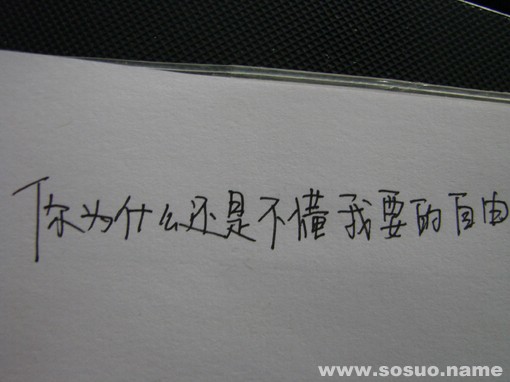 你为什么还是不懂我要的自由
www.sosuo.name